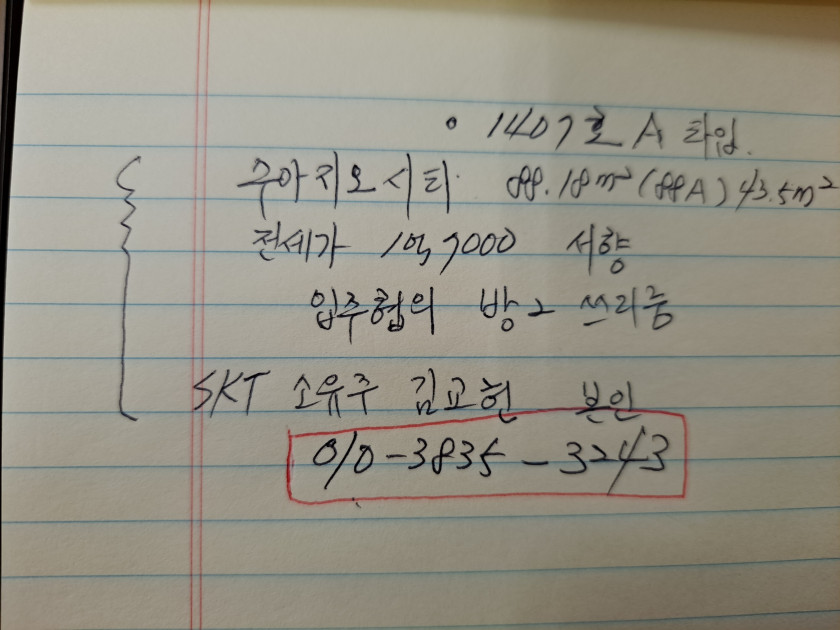 • 1407호 A 타입.
주아지오시티. 88.18m² (88A) 43.5m²
전세가 1억7000 서향
입주협의 방2 쓰리룸
SKT 소유주 김교헌 본인
010-3835-3243